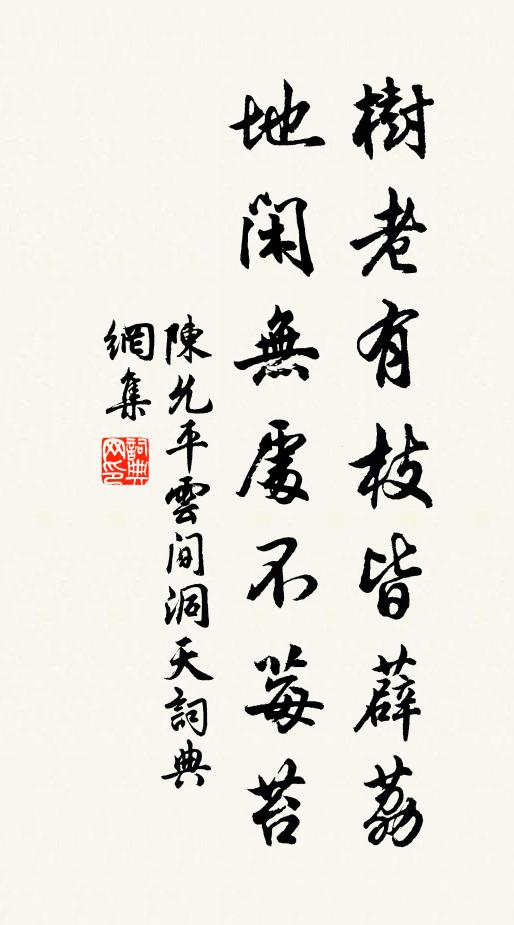 樹老有枝皆薜荔
地閑無處不莓苔
陳允平雲間洞天詞典
網集
詞典
网印